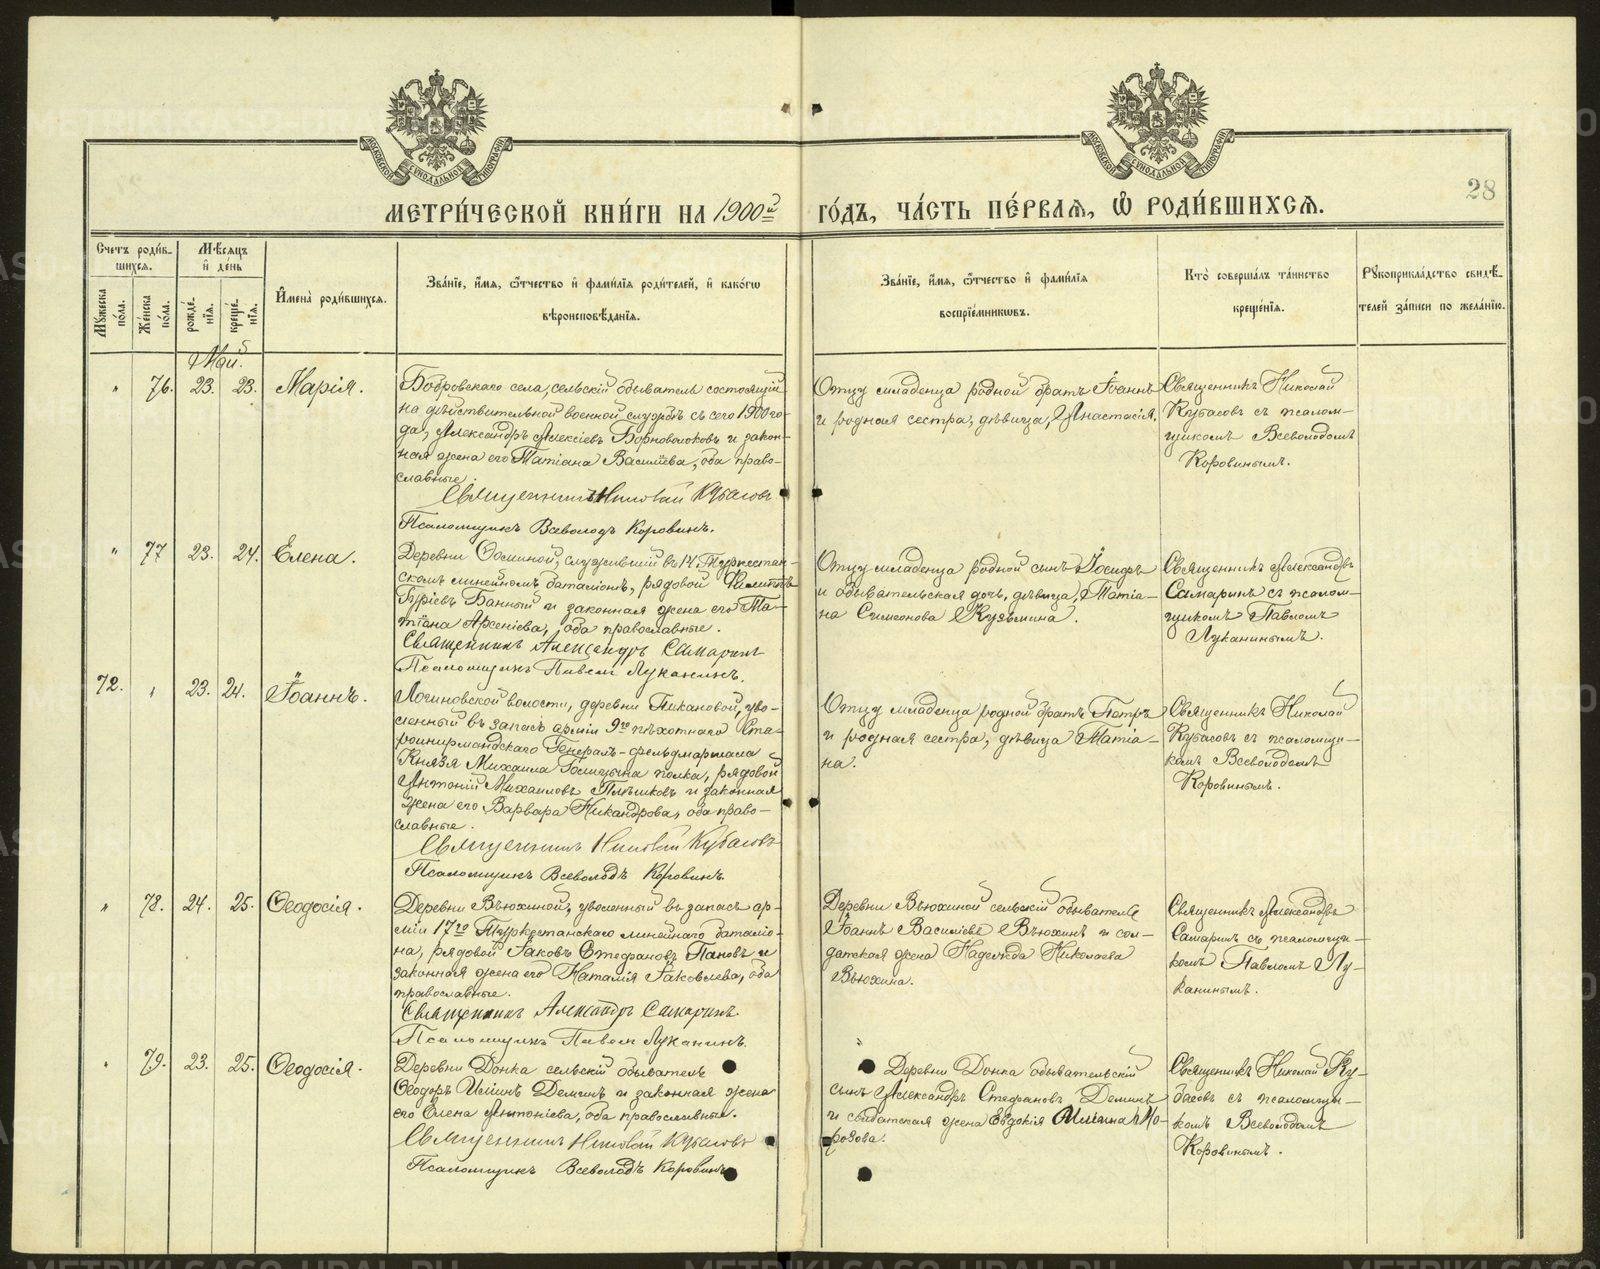 МОСКОВСКОЙ СѴНОДАЛЬНОЙ ТИПОГРАФІИ
МОСКОВСКОЙ СѴНОДАЛЬНОЙ ТИПОГРАФІИ
28
МЕТРИ́ЧЕСКОЙ КНИ́ГИ НА 1900й ГО́ДЪ, ЧА́СТЬ ПЕ́РВАЯ, Ѡ҆ РОДИ́ВШИХСЯ.
Счетъ роди́в-
шихся.
Мѣ́сяцъ
и҆ день
Мꙋжеска по́ла.
Же́нска по́ла.
рожде́-
нїя.
креще́-
нїя.
И҆мена̀ роди́вшихся.
Зва́нїе, и҆́мя, ѻ҆́тчество и҆ фами́лїя роди́телей, и҆ како́гѡ
вѣроисповѣ́данїя.
Зва́нїе, и҆́мя, ѻ҆́тчество и҆ фами́лїя
воспрїе́мникѡвъ.
Кто̀ соверша́лъ та́инство
креще́нїя.
Рꙋкоприкла́дство свидѣ́-
телей за́писи по жела́нїю.
Май
" 76. 23. 23. Марія.
Бобровскаго села, сельскій обыватель состоящій
на дѣйствительной военной службѣ съ сего 1900 го-
да, Александръ Алексіевъ Борноволоковъ и закон-
ная жена его Татіана Василіева, оба право-
славные.
Священникъ Николай Кубасовъ
Псаломщикъ Всеволодъ Коровинъ.
Отцу младенца родной братъ Іоаннъ
и родная сестра, дѣвица, Анастасія.
Священникъ Николай
Кубасовъ съ псалом-
щикомъ Всеволодомъ
Коровинымъ.
" 77 23. 24. Елена.
Деревни Осиной, служившій въ 14 Туркестан-
скомъ линейномъ баталіонѣ, рядовой Филиппъ
Гуріевъ Банный и законная жена его Та-
тіана Арсеніева, оба православные.
Священникъ Александръ Самаринъ
Псаломщикъ Павелъ Луканинъ.
Отцу младенца родной сынъ Іосифъ
и обывательская дочь, дѣвица, Татіа-
на Симеонова Кузьмина.
Священникъ Александръ
Самаринъ съ псалом-
щикомъ Павломъ
Луканинымъ.
72. " 23. 24. Іоаннъ.
Логиновской волости, деревни Пикановой, уво-
ленный въ запасъ арміи 9го пѣхотнаго Ста-
роингерманландскаго Генералъ-фельдмаршала
Князя Михаила Голицына полка, рядовой
Антоній Михаиловъ Плѣшковъ и законная
жена его Варвара Никандрова, оба право-
славные.
Священникъ Николай Кубасовъ
Псаломщикъ Всеволодъ Коровинъ.
Отцу младенца родной братъ Петръ
и родная сестра, дѣвица Татіа-
на.
Священникъ Николай
Кубасовъ съ псаломщи-
комъ Всеволодомъ
Коровинымъ.
" 78. 24. 25. Ѳеодосія.
Деревни Вьюхиной, уволенный въ запасъ ар-
міи 17го Туркестанскаго линейнаго баталіо-
на, рядовой Іаковъ Стефановъ Пановъ и
законная жена его Наталія Іаковлева, оба
православные.
Священникъ Александръ Самаринъ.
Псаломщикъ Павелъ Луканинъ.
Деревни Вьюхиной сельскій обыватель
Іоаннъ Василіевъ Вьюхинъ и сол-
датская жена Надежда Николаева
Вьюхина.
Священникъ Александръ
Самаринъ съ псаломщи-
комъ Павломъ Лу-
канинымъ.
" 79. 23. 25. Ѳеодосія.
Деревни Донка сельскій обыватель
Ѳеодоръ Ильинъ Деминъ и законная жена
его Елена Антоніева, оба православные.
Священникъ Николай Кубасовъ
Псаломщикъ Всеволодъ Коровинъ
Деревни Донка обывательскій
сынъ Александръ Стефановъ Деминъ
и солдатская жена Евдокія Ильина Мо-
розова.
Священникъ Николай Ку-
басовъ съ псаломщи-
комъ Всеволодомъ
Коровинымъ.
METRIKI.GASO-URAL.RU